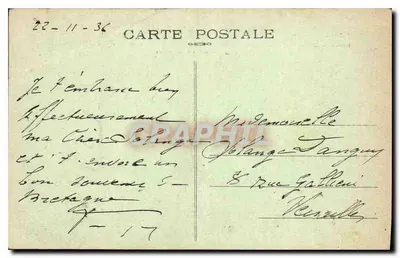 22-11-36
CARTE POSTALE
Je t'embrasse bien
affectueusement
ma Chère Solange
et t'envoie un
bon souvenir de
Bretagne
Mademoiselle
Solange Tanguy
8 rue Gallieni
Versailles